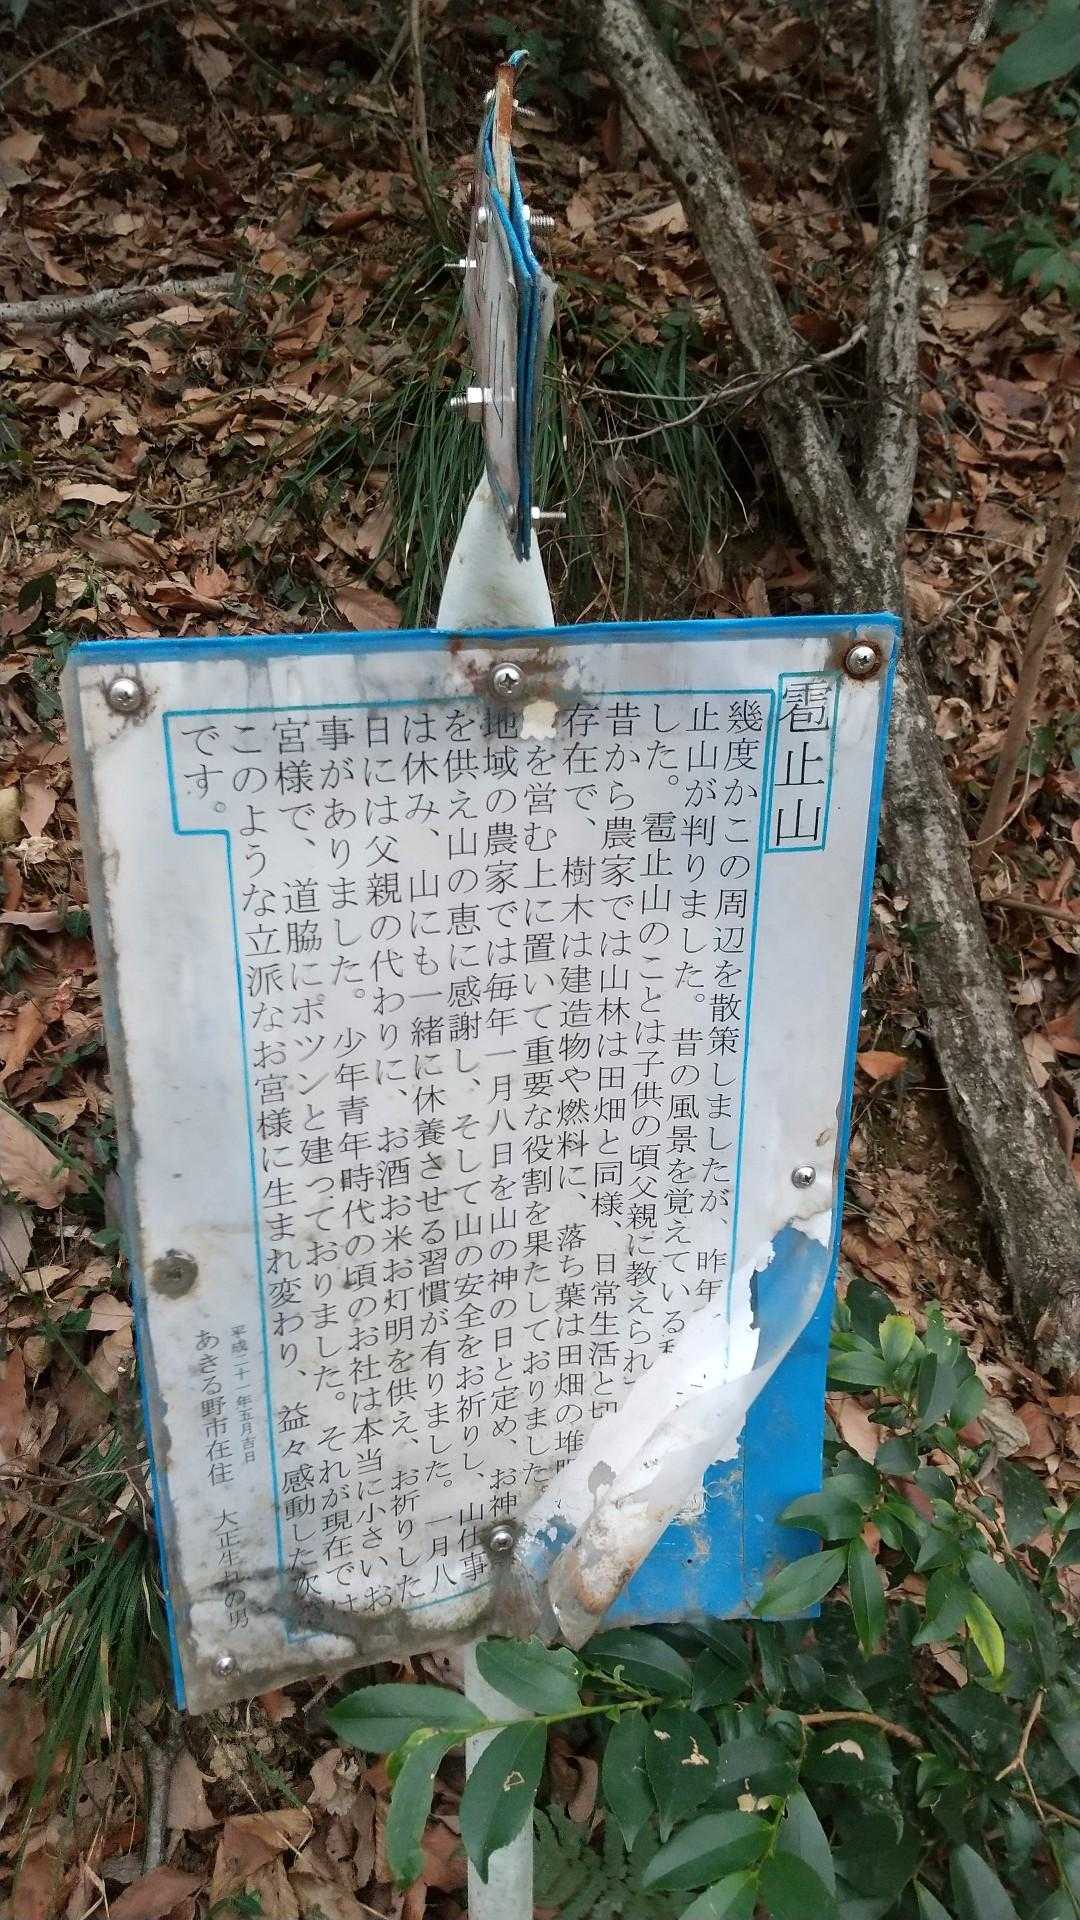 雹止山
幾度かこの周辺を散策しましたが、昨年
止山が判りました。昔の風景を覚えているま
した。雹止山のことは子供の頃父親に教えられ
昔から農家では山林は田畑と同様、日常生活と切
存在で、樹木は建造物や燃料に、落ち葉は田畑の堆肥
を営む上に置いて重要な役割を果たしておりました。
地域の農家では毎年一月八日を山の神の日と定め、お神
を供え山の恵に感謝し、そして山の安全をお祈りし、山仕事
は休み、山にも一緒に休養させる習慣が有りました。一月八
日には父親の代わりに、お酒お米お灯明を供え、お祈りした
事がありました。少年青年時代の頃のお社は本当に小さいお
宮様で、道脇にポツンと建っておりました。それが現在では
このような立派なお宮様に生まれ変わり、益々感動した次
です。
平成二十一年五月吉日
あきる野市在住 大正生れの男